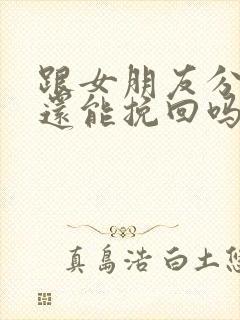 跟女朋友分
還能挽回吗
真島浩 白土悠